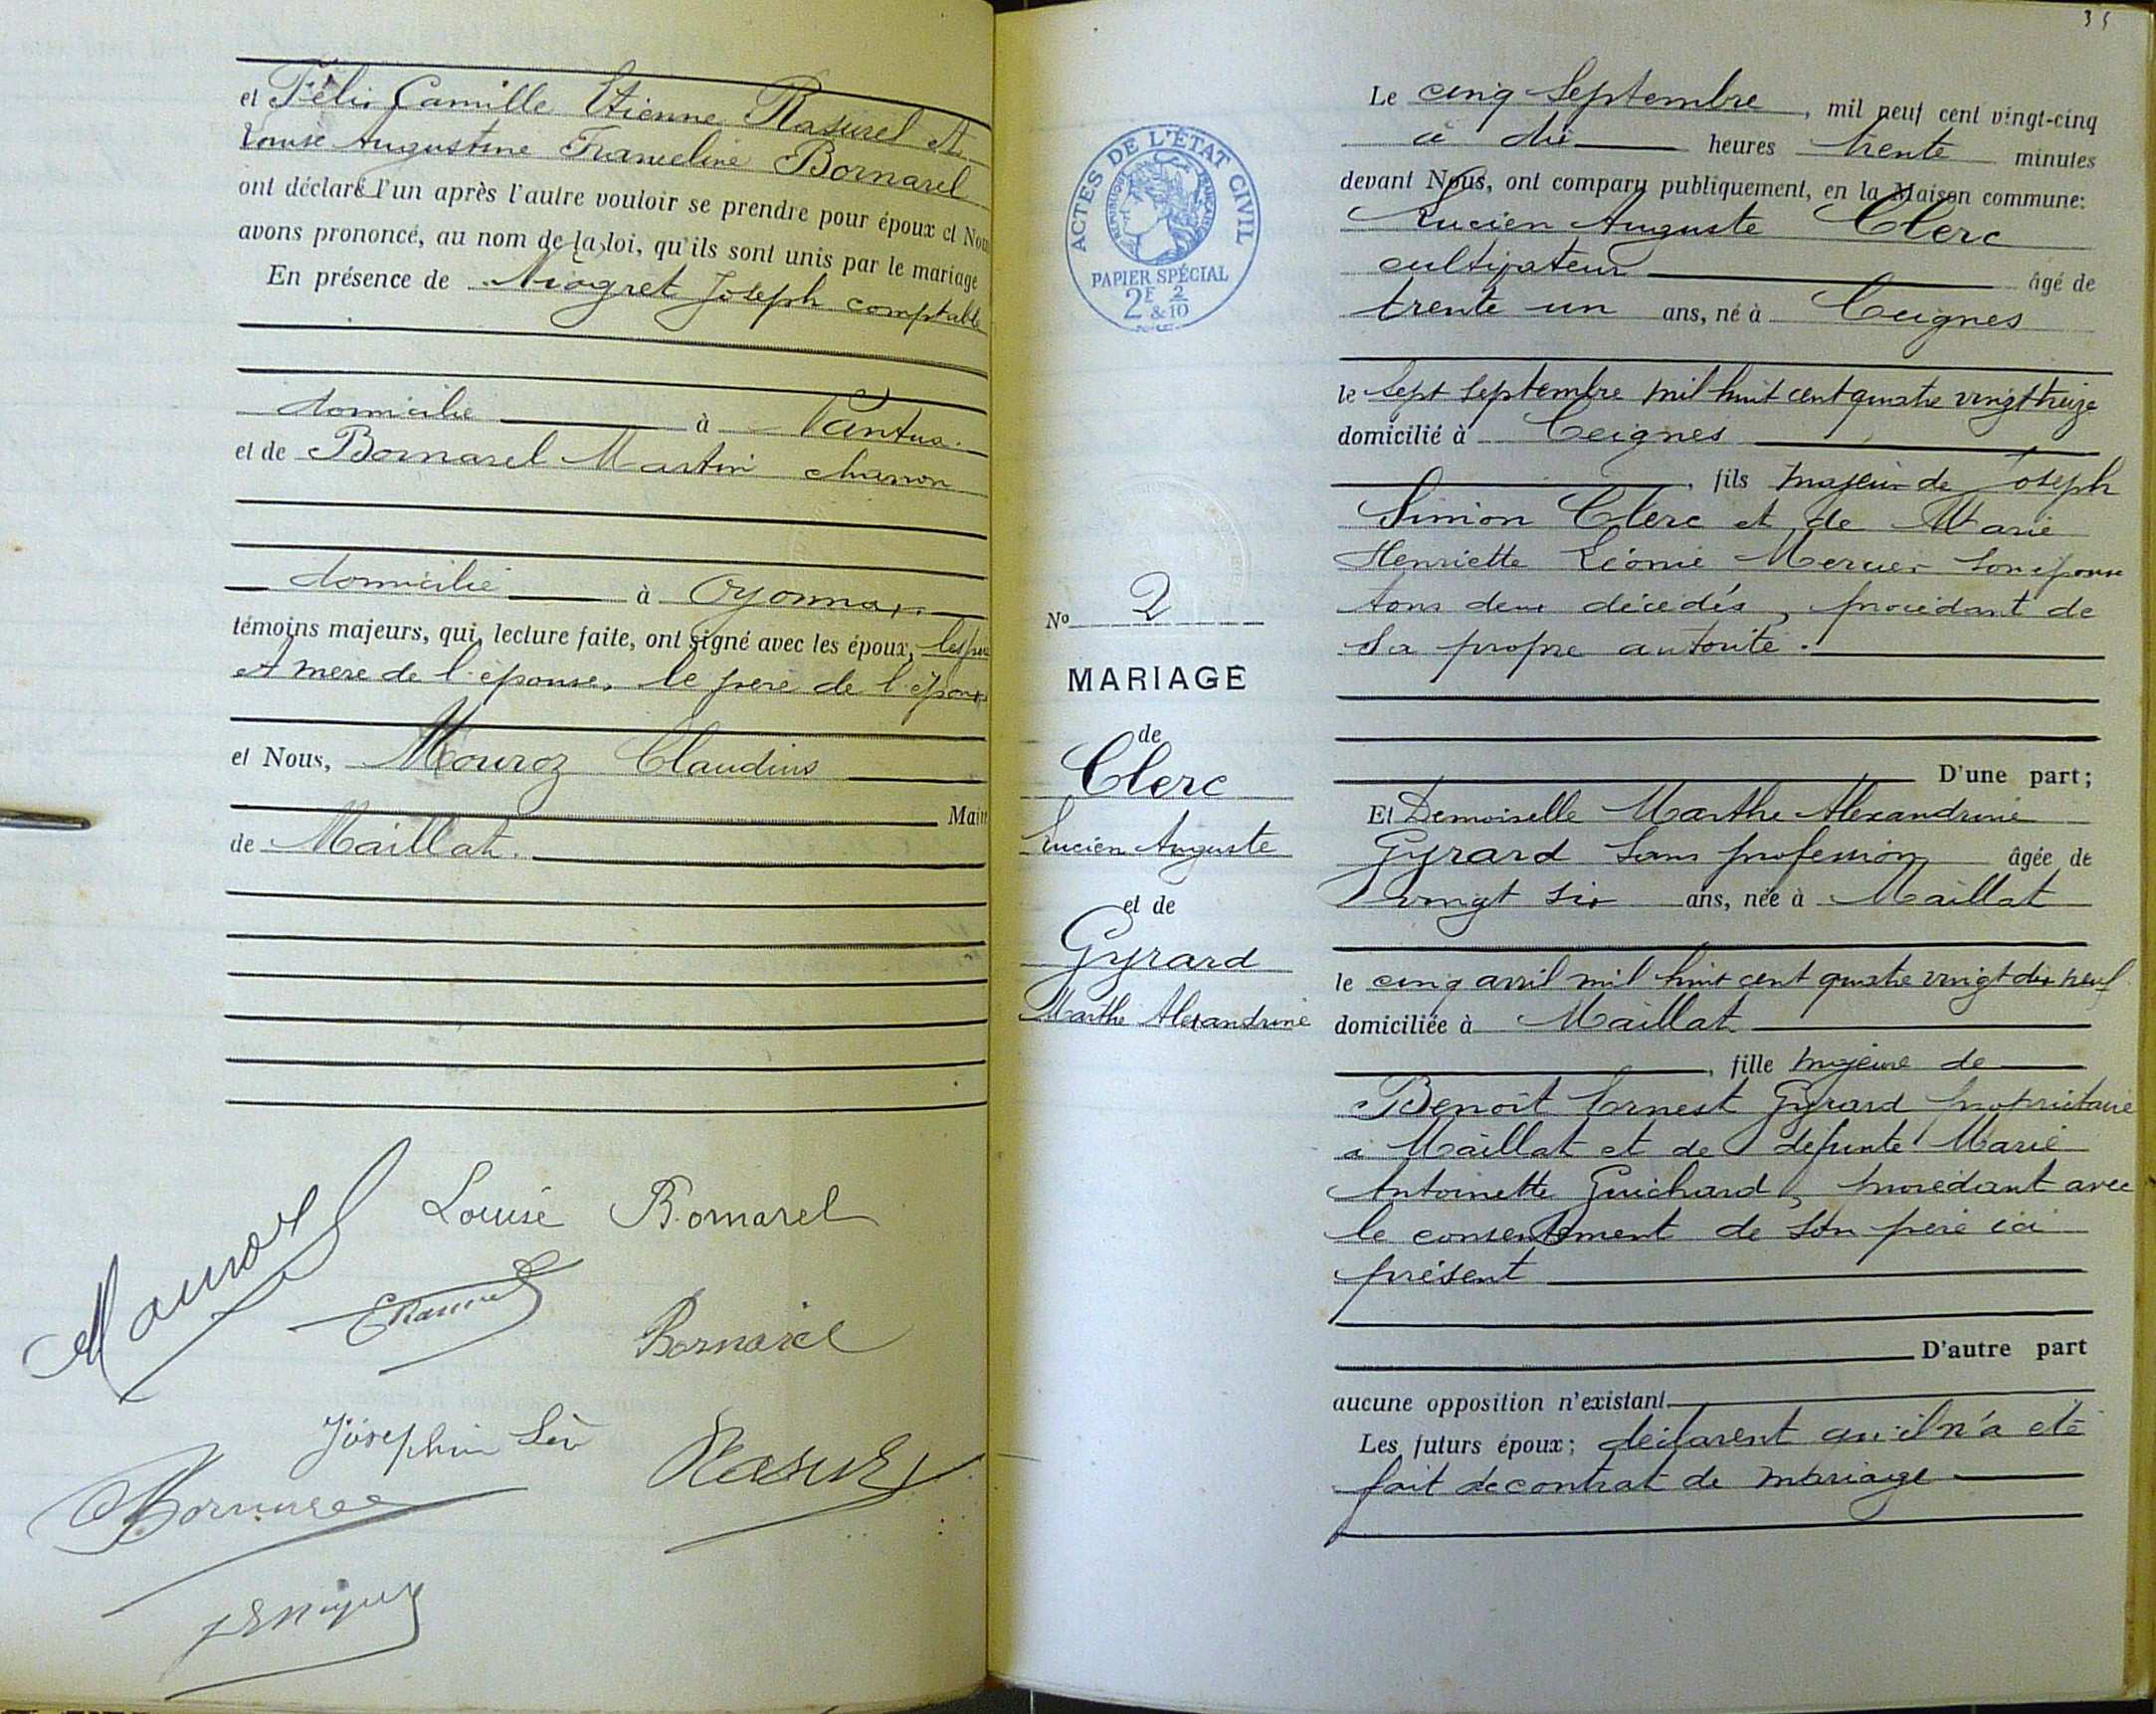 et Félix Camille Etienne Rasurel et
Louise Augustine Franceline Bornarel
ont déclaré l'un après l'autre vouloir se prendre pour époux et Nous
avons prononcé, au nom de la loi, qu'ils sont unis par le mariage
En présence de Niogret Joseph comptable
domicilié à Nantua.
et de Bornarel Martin charron
domicilié à Oyonnax.
témoins majeurs, qui, lecture faite, ont signé avec les époux, les père
et mère de l'épouse, le père de l'époux
et Nous, Mouroz Claudius
Maire
de Maillat.
Louise Bornarel
Mouroz
E Rasurel
Bornarel
Joséphin
Rasurel
Bornarel
35
ACTES DE L'ÉTAT CIVIL
RÉPUBLIQUE FRANÇAISE
PAPIER SPÉCIAL
2F & 2/10
No 2
MARIAGE
de
Clerc
Lucien Auguste
et de
Gyrard
Marthe Alexandrine
Le cinq Septembre, mil neuf cent vingt-cinq
à dix heures trente minutes
devant Nous, ont comparu publiquement, en la Maison commune:
Lucien Auguste Clerc
cultivateur âgé de
trente un ans, né à Ceignes
le sept septembre mil huit cent quatre vingt treize
domicilié à Ceignes
, fils majeur de Joseph
Simon Clerc et de Marie
Henriette Léonie Mercier son épouse
tous deux décédés, procédant de
sa propre autorité.
D'une part;
Et Demoiselle Marthe Alexandrine
Gyrard sans profession âgée de
vingt six ans, née à Maillat
le cinq avril mil huit cent quatre vingt dix neuf
domiciliée à Maillat
, fille majeure de
Benoît Ernest Gyrard propriétaire
à Maillat et de défunte Marie
Antoinette Guichard, procédant avec
le consentement de son père ici
présent
D'autre part
aucune opposition n'existant
Les futurs époux; déclarent qu'il n'a été
fait de contrat de mariage